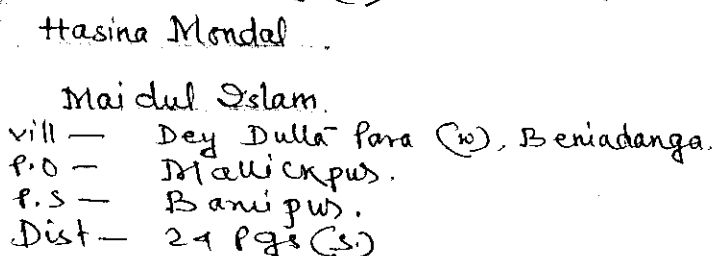 Hasina Mondal
Maidul Islam.
vill — Dey Dulla Para (w), Beniadanga.
P.O — Mallickpur.
P.S — Baruipur.
Dist — 24 Pgs (S.)